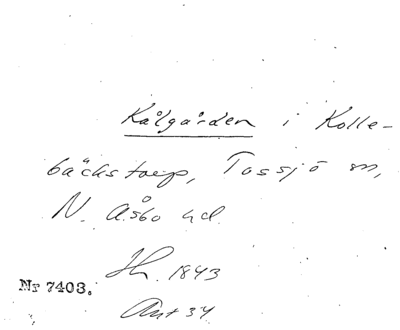 Kålgården i Kolle-
bäckstorp, Tossjö sn,
N. Åsbo hd.
Hr. 1843
Nr 7403.
Ant 34